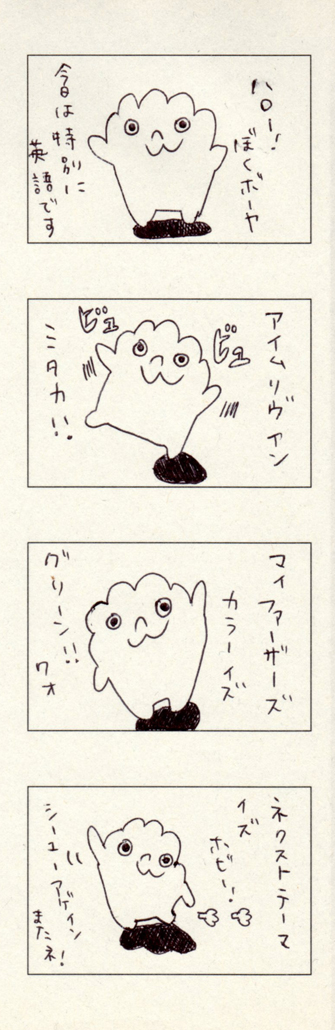 ハロー!
ぼくボーヤ
今日は特別に
英語です
アイムリヴイン
ビュ
ビュ
ミタカ!!
マイファーザーズ
カラーイズ
グリーン!!
ワオ
ネクストテーマ
イズ
ホビー!
シーユーアゲイン
またネ!